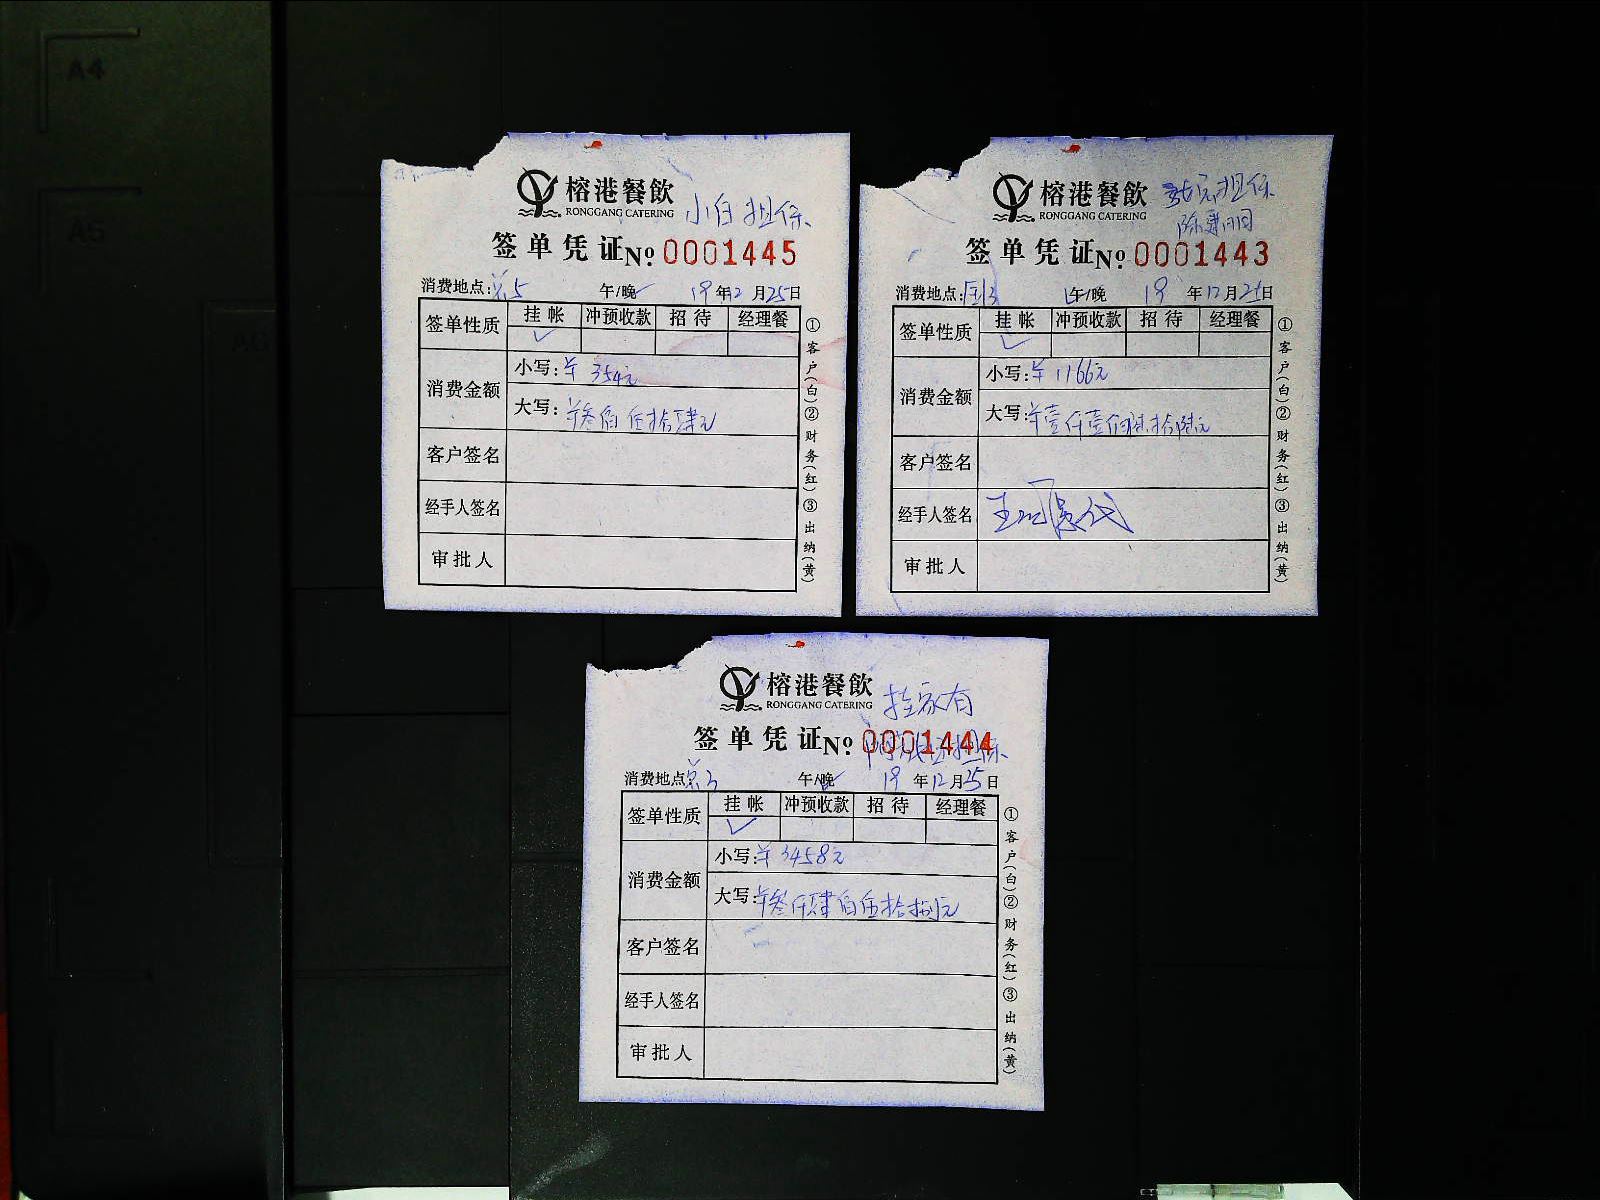 A4
A5
榕港餐飲
RONGGANG CATERING
小白担保
签单凭证 No. 0001445
消费地点: 5 午/晚 19年12月25日
签单性质 挂帐 冲预收款 招待 经理餐
✓
消费金额
小写: ¥ 354元
大写: ¥叁佰伍拾肆元
客户签名
经手人签名
审批人
①客户(白)②财务(红)③出纳(黄)
榕港餐飲
RONGGANG CATERING
担保
签单凭证 No. 0001443
消费地点: 午/晚 19年12月25日
签单性质 挂帐 冲预收款 招待 经理餐
✓
消费金额
小写: ¥ 1166元
大写: ¥壹仟壹佰陆拾陆元
客户签名
经手人签名 王
审批人
①客户(白)②财务(红)③出纳(黄)
榕港餐飲
RONGGANG CATERING
挂家有
担保
签单凭证 No. 0001444
消费地点: 午/晚 19年12月25日
签单性质 挂帐 冲预收款 招待 经理餐
✓
消费金额
小写: ¥ 3458元
大写: ¥叁仟肆佰伍拾捌元
客户签名
经手人签名
审批人
①客户(白)②财务(红)③出纳(黄)